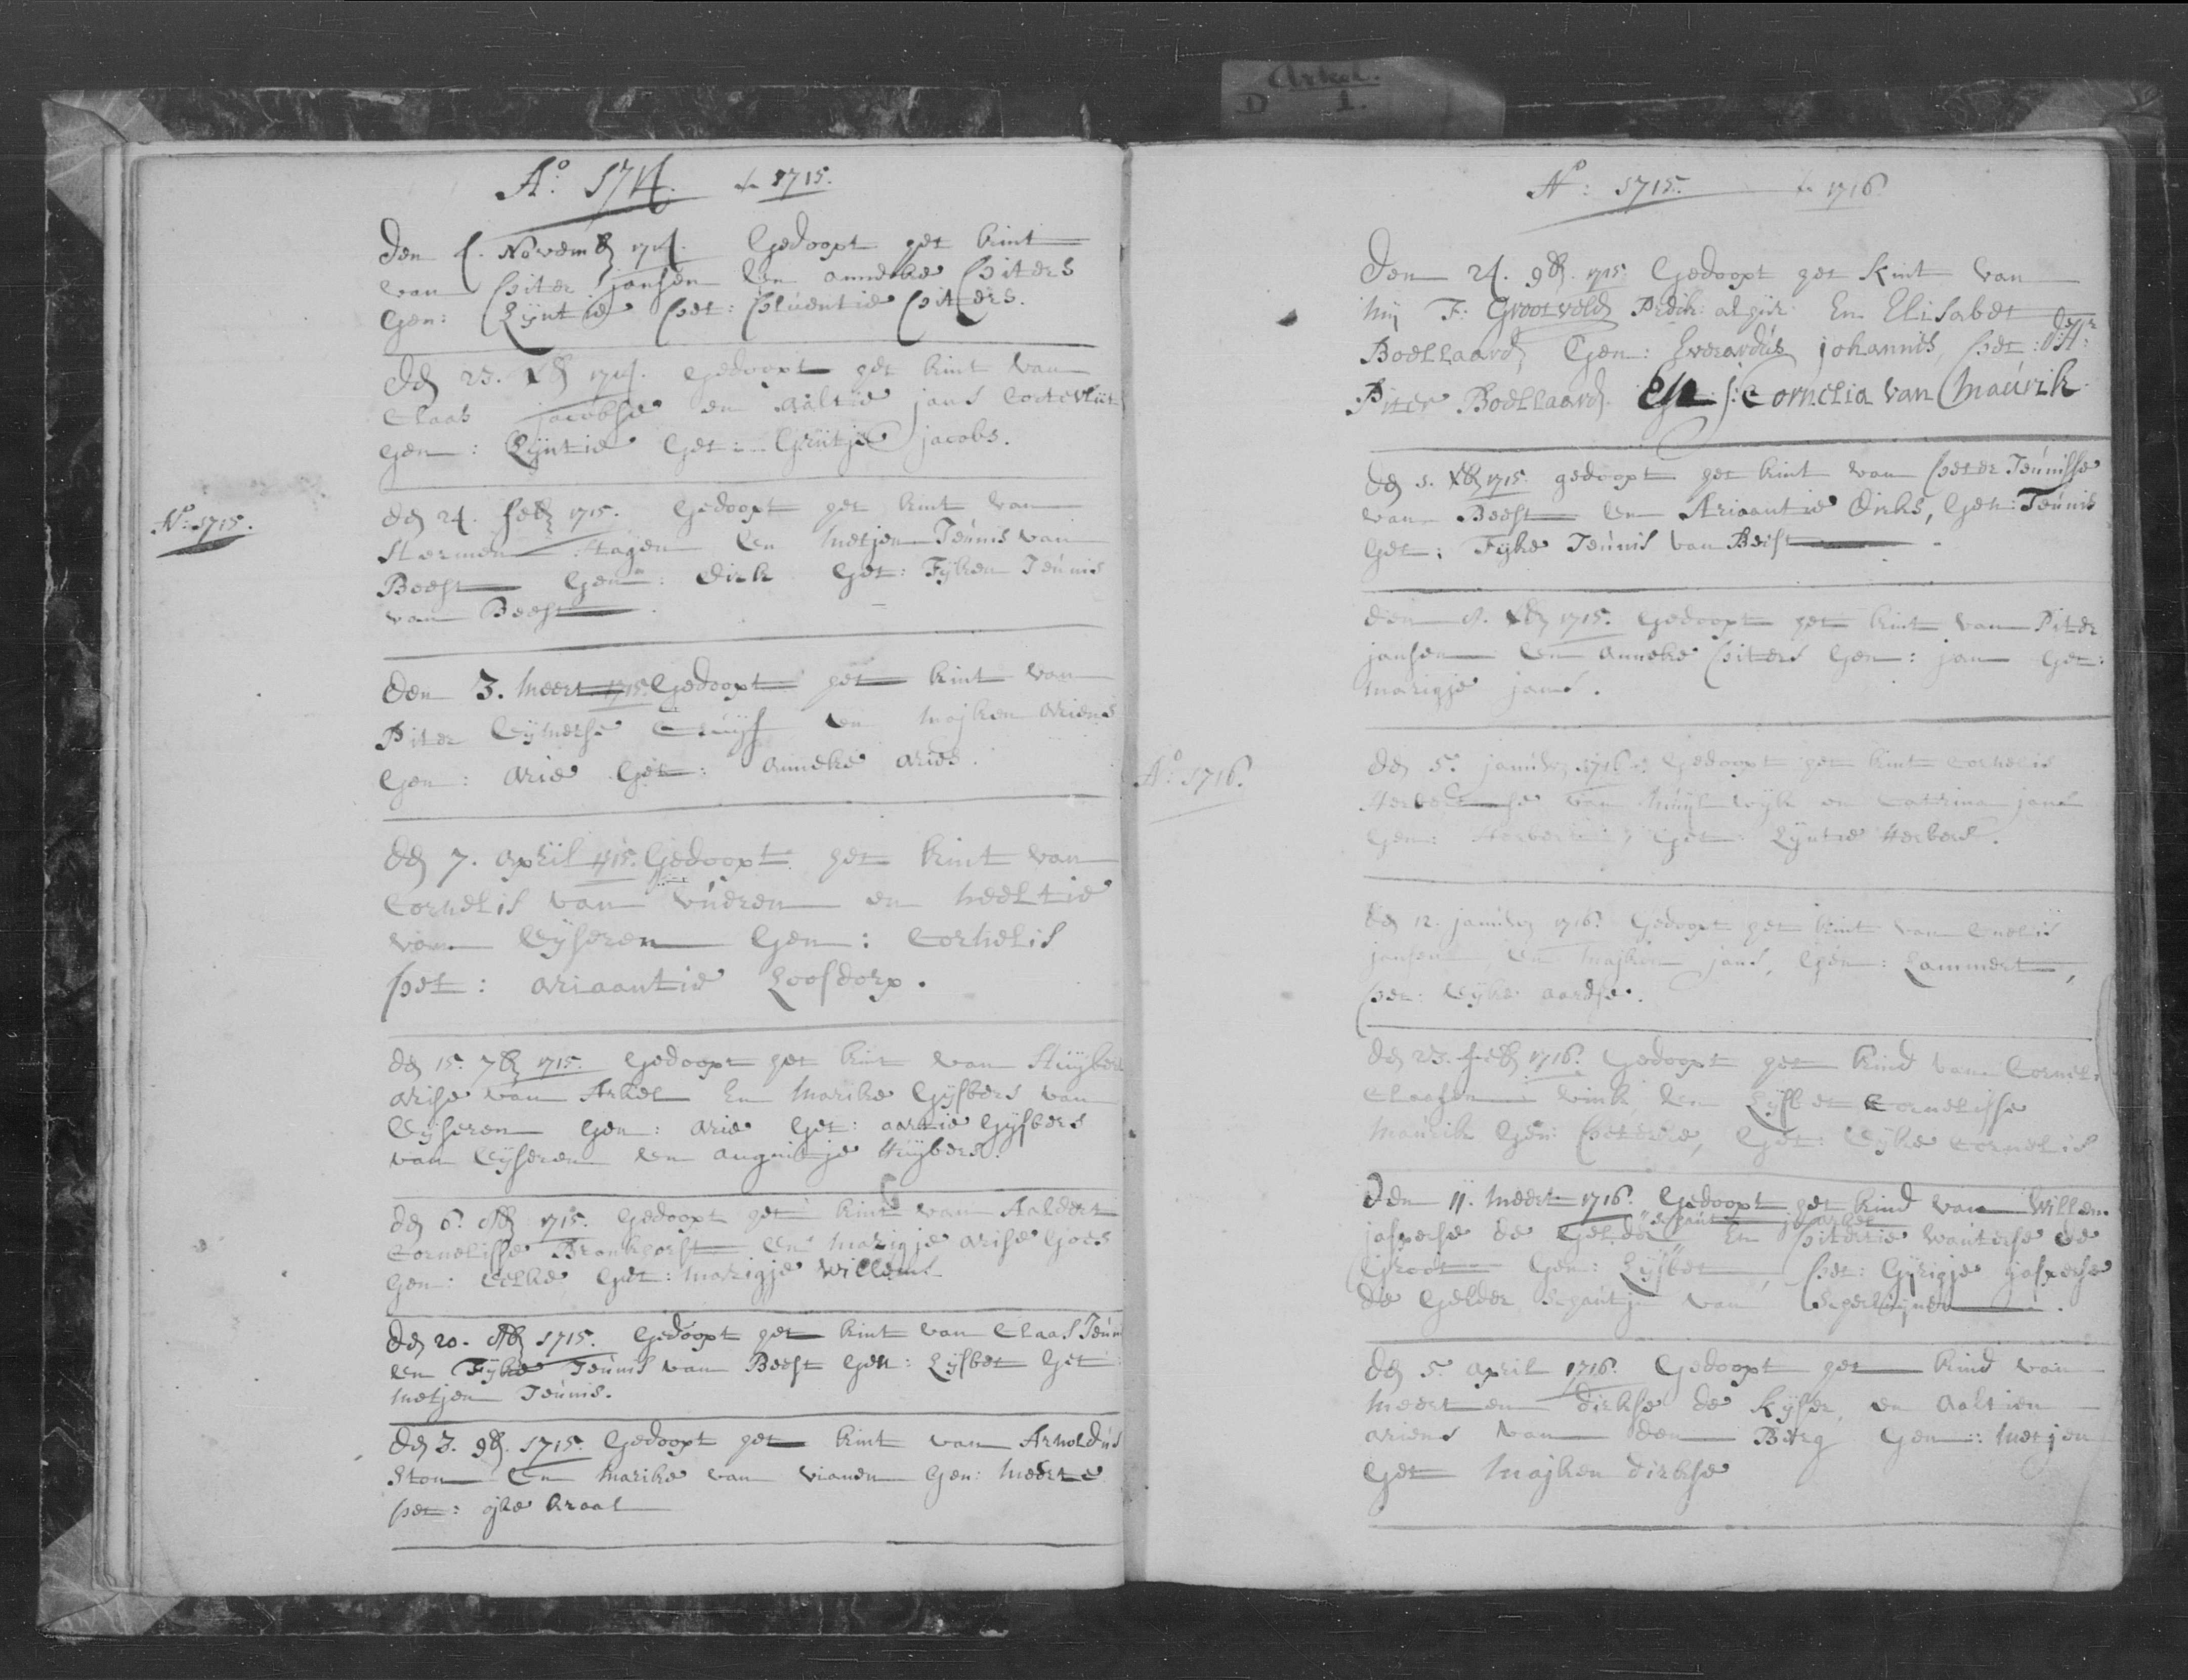 Arkel.
D 1.
Aº. 1714. en 1715.
Den 4. Novemb 1714. Gedoopt het kint
van Piter jansen en anneke Piters
Gen: Lijntie Get: Pluentie Piters.
Den 23. Xb 1714. Gedoopt het kint van
Claas jacobse en aaltie jans
gen: Lijntie Get: Grietje jacobs.
Aº. 1715.
den 24. feb 1715. Gedoopt het kint van
Hermen Hagen en Metjen Teúnis van
Beest Gen: Dirk Get: Fijken Teúnis
van Beest
Den 3. Meert 1715 Gedoopt het kint van
Piter Cruijf en Majken Ariens
Gen: Arie Get: Anneke Aries.
den 7. April 1715. Gedoopt het kint van
Cornelis van Vúeren en Neeltie
van Gen: Cornelis
Get: Ariaantie Loofdorp.
den 15. 7b 1715. Gedoopt het kint van Huijbert
Arise van Arkel En Marike Gijsbers van
Gen: Arie Get: aartie Gijsbers
van en angnitje Huijbers.
den 6. 8b 1715. Gedoopt het kint van Aaldert
Cornelisse Bronkhorst en Marigje Arise Goes
Gen: Eelke Get: Marigje Willems
den 20. 8b 1715. Gedoopt het kint van Claas Teúni
en Fijke Teúnis van Beest Gen: Lijsbet Get:
Metjen Teúnis.
den 3. 9b. 1715. Gedoopt het kint van Arnoldús
Stou en Marike van Vianen Gen: Meerte
Get: ijke kraal
Aº: 1715. en 1716
Den 24. 9b. 1715 Gedoopt het kint van
Mij F: Grootveld Predik: alhir En Elisabet
Boellaard, Gen: Everardús johannis, Get: d'Hr
Piter Boellaard. En j: Cornelia van Maúrik
den 1. Xb 1715. gedoopt het kint van Peter Teúnisse
van Beest en Ariaantie Dirks, Gen: Teúnis
Get: Fijke Teúnis van Beest
den 8. Xb 1715. Gedoopt het kint van Piter
jansen en anneke Piters Gen: jan Get:
Marigje jans.
Aº. 1716.
den 5. janúbr 1716. Gedoopt het kint Cornelis
Herbertse van Múijlwijk en Catrina jans
Gen: Get: Lijntie Herbers.
den 12. janúbr 1716. Gedoopt het kint van Cnelis
jansen, en Majken jans, Gen: Lammert,
Get: Eijke Aardse.
den 23. feb 1716. Gedoopt het kind van Corneli
Claasen Vink en Lijsbet Cornelisse
Maúrik Gen: Peterke, Get: Eijke Cornelis
Den 11. Meert 1716. Gedoopt het kind van Willem
schaút in arkel
jasperse de Gelder En Pitertie Wauterse de
Groot Gen: Lijsbet, Get: Gijrigje jasperse
de Gelder schaútje van
den 5. April 1716. Gedoopt het kind van
Meerten Dirkse de Kijser, en Aaltien
ariens van den Berg Gen: Metjen
Get Majken Dirkse